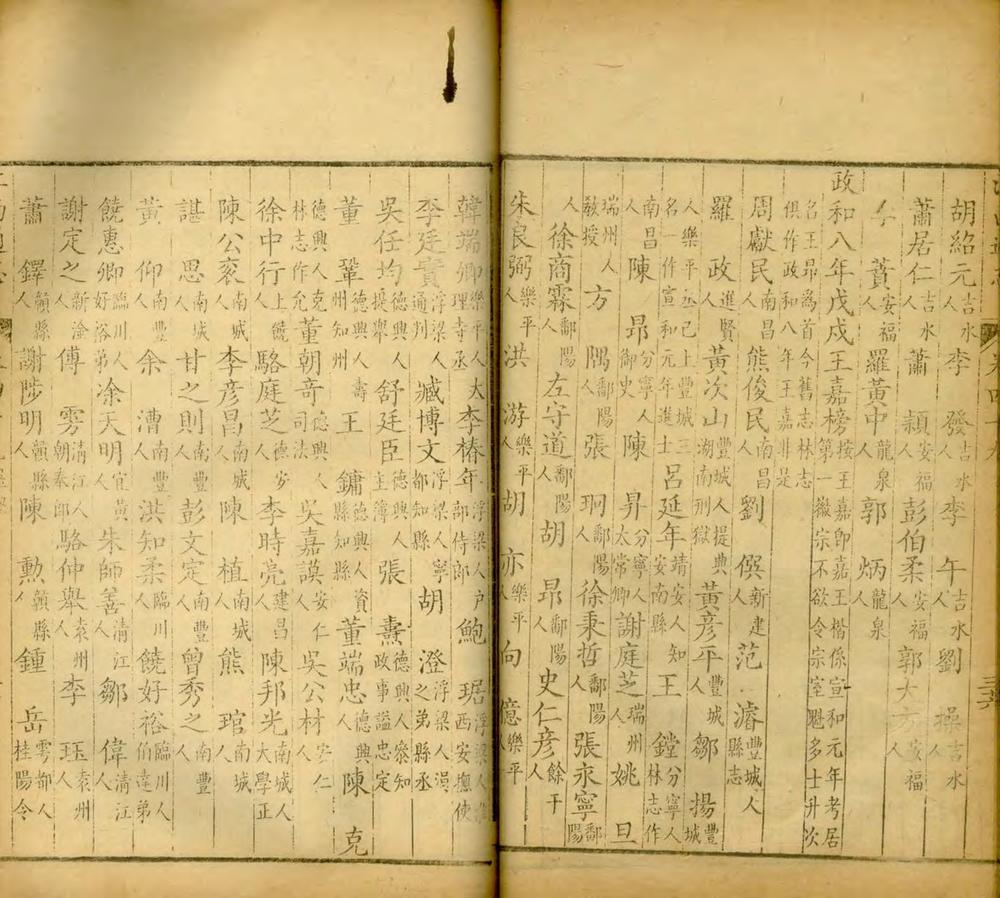 胡紹元吉水人李發吉水人李午吉水人劉操吉水人
蕭居仁吉水人蕭頴安福人彭伯柔安福人郭大安福人
蕡安福人羅黃中龍泉人郭炳龍泉人
政和八年戊戌王嘉榜按王嘉即嘉王楷係宣和元年考居第一徽宗不欲令宗室魁多士升次
名王昂為首今舊志林志俱作政和八年王嘉非是
周獻民南昌人熊俊民南昌人劉俁新建人范濬豐城人縣志
羅政進賢人黃次山豐城人提典湖南刑獄黃彦平豐城人鄒揚豐城
人樂平丞已上豐城三名一作宣和元年進士呂延年靖安人知安南縣王鏜分寧人林志作
南昌人陳昻分寧人御史陳昇分寧人太常卿謝庭芝瑞州人姚旦
瑞州人教授方隅鄱陽人張珂鄱陽人徐秉哲鄱陽人張永寧鄱陽
人徐商霖鄱陽人左守道鄱陽人胡昂鄱陽人史仁彦餘干人
朱良弼樂平人洪游樂平人胡亦樂平人向億樂平人
韓端卿樂平人大理寺丞李椿年浮梁人户部侍郎鮑琚浮梁人西安撫使
李廷賓浮梁人通判臧博文浮梁人寧都知縣胡澄浮梁人涓之弟縣丞
吳任均德興人提舉舒廷臣德興人主簿張燾德興人叅知政事謚忠定
董鞏德興人壽州知州王鏞德興人資縣知縣董端忠德興人陳克
德興人克林志作允董朝竒德興人司法吳嘉謨安仁人吳公材安仁人
徐中行上饒人駱庭芝德安人李時亮建昌人陳邦光南城人大學正
陳公衮南城人李彦昌南城人陳植南城人熊琯南城人
諶思南城人甘之則南豐人彭文定南豐人曾秀之南豐人
黃仰南豐人余漕南豐人洪知柔臨川人饒好裕臨川人伯達弟
饒惠卿臨川人好裕弟涂天明宜黃人朱師善清江人鄒偉清江人
謝定之新淦人傅雱清江人朝奉郎駱仲舉袁州人李珏袁州人
蕭鐸贛縣人謝陟明贛縣人陳勲贛縣人鍾岳雩都人桂陽令